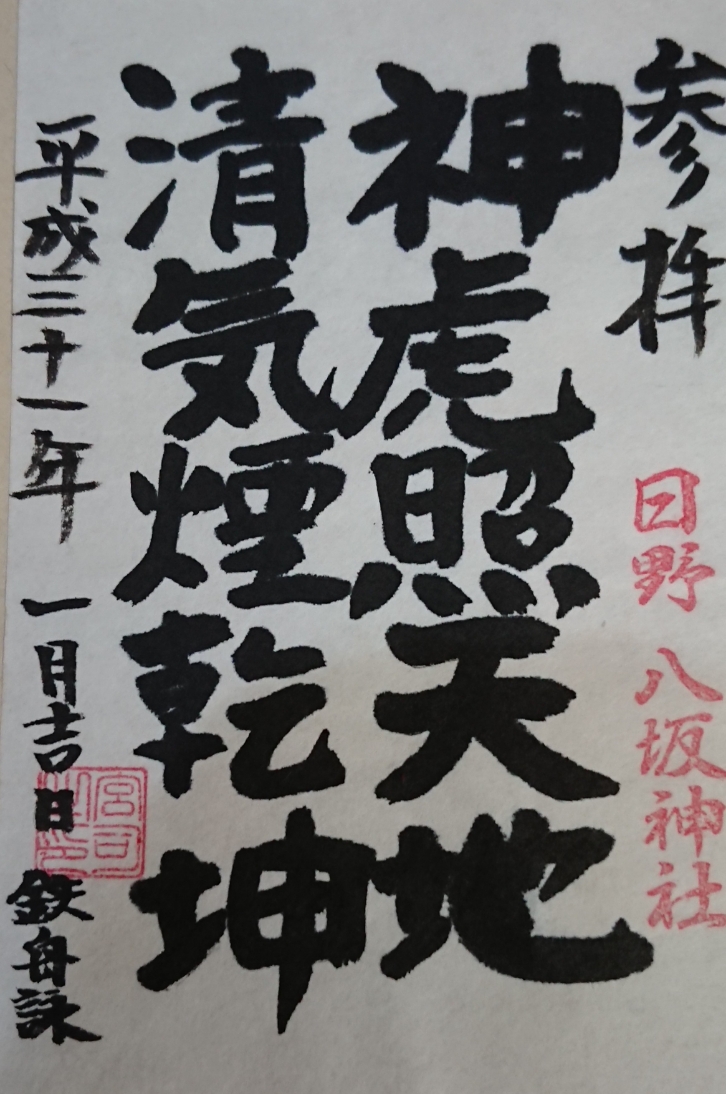 参拝
日野 八坂神社
神虎照天地
清気煙乾坤
平成三十一年 一月吉日 鉄舟詠
宮司之印